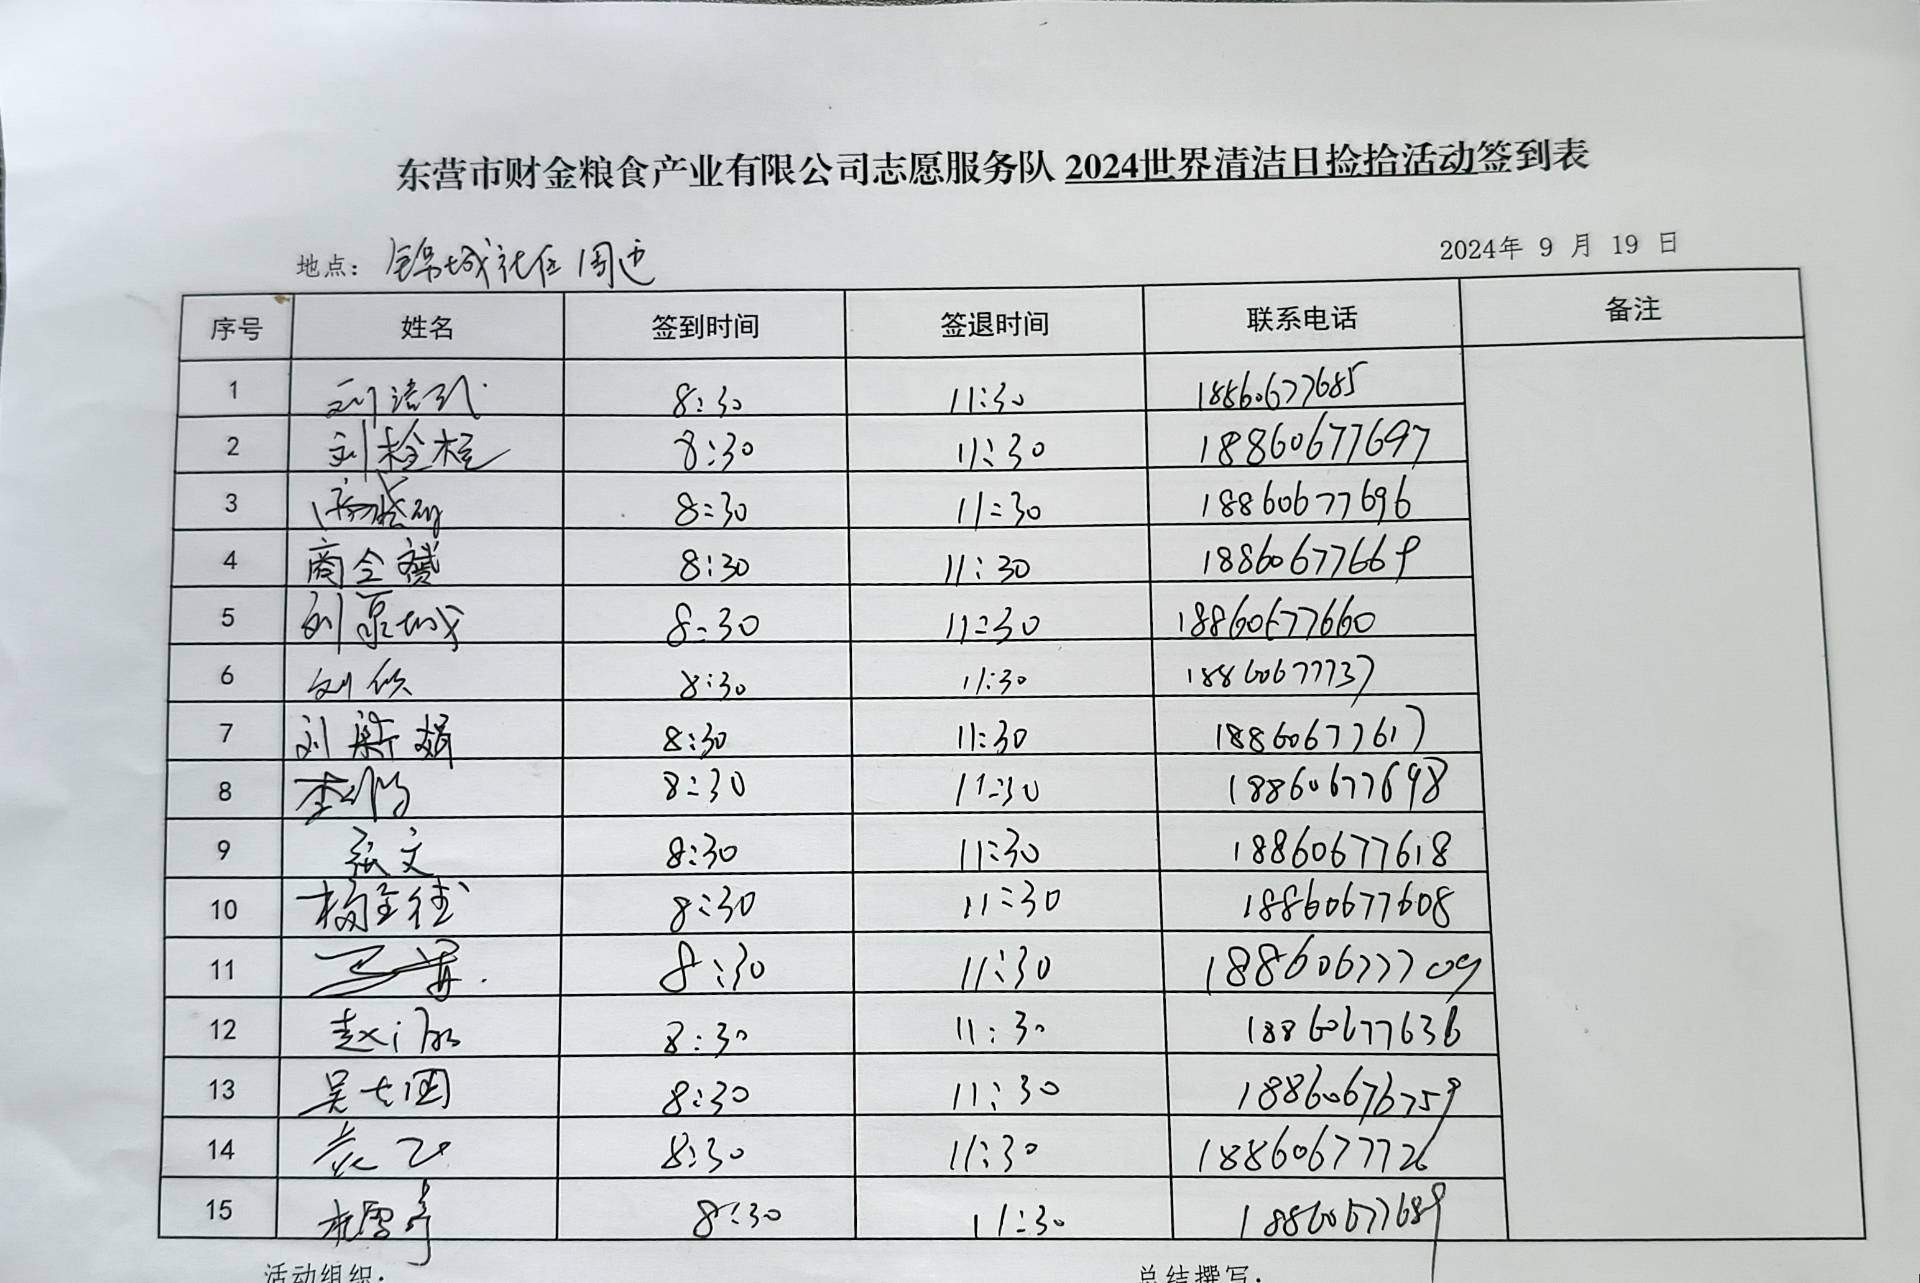 东营市财金粮食产业有限公司志愿服务队 2024世界清洁日捡拾活动签到表
地点： 锦城社区周边 2024年 9 月 19 日
序号 姓名 签到时间 签退时间 联系电话 备注
1 刘 8:30 11:30 18860677685
2 刘栓柱 8:30 11:30 18860677697
3 8:30 11:30 18860677696
4 商全 8:30 11:30 18860677669
5 刘景城 8:30 11:30 18860677660
6 刘欣 8:30 11:30 18860677737
7 刘新娟 8:30 11:30 18860677617
8 李 8:30 11:30 18860677698
9 张文 8:30 11:30 18860677618
10 杨全德 8:30 11:30 18860677608
11 8:30 11:30 18860677709
12 赵 8:30 11:30 18860677636
13 吴 8:30 11:30 18860676759
14 袁 8:30 11:30 18860677726
15 8:30 11:30 18860677689
活动组织： 总结撰写：